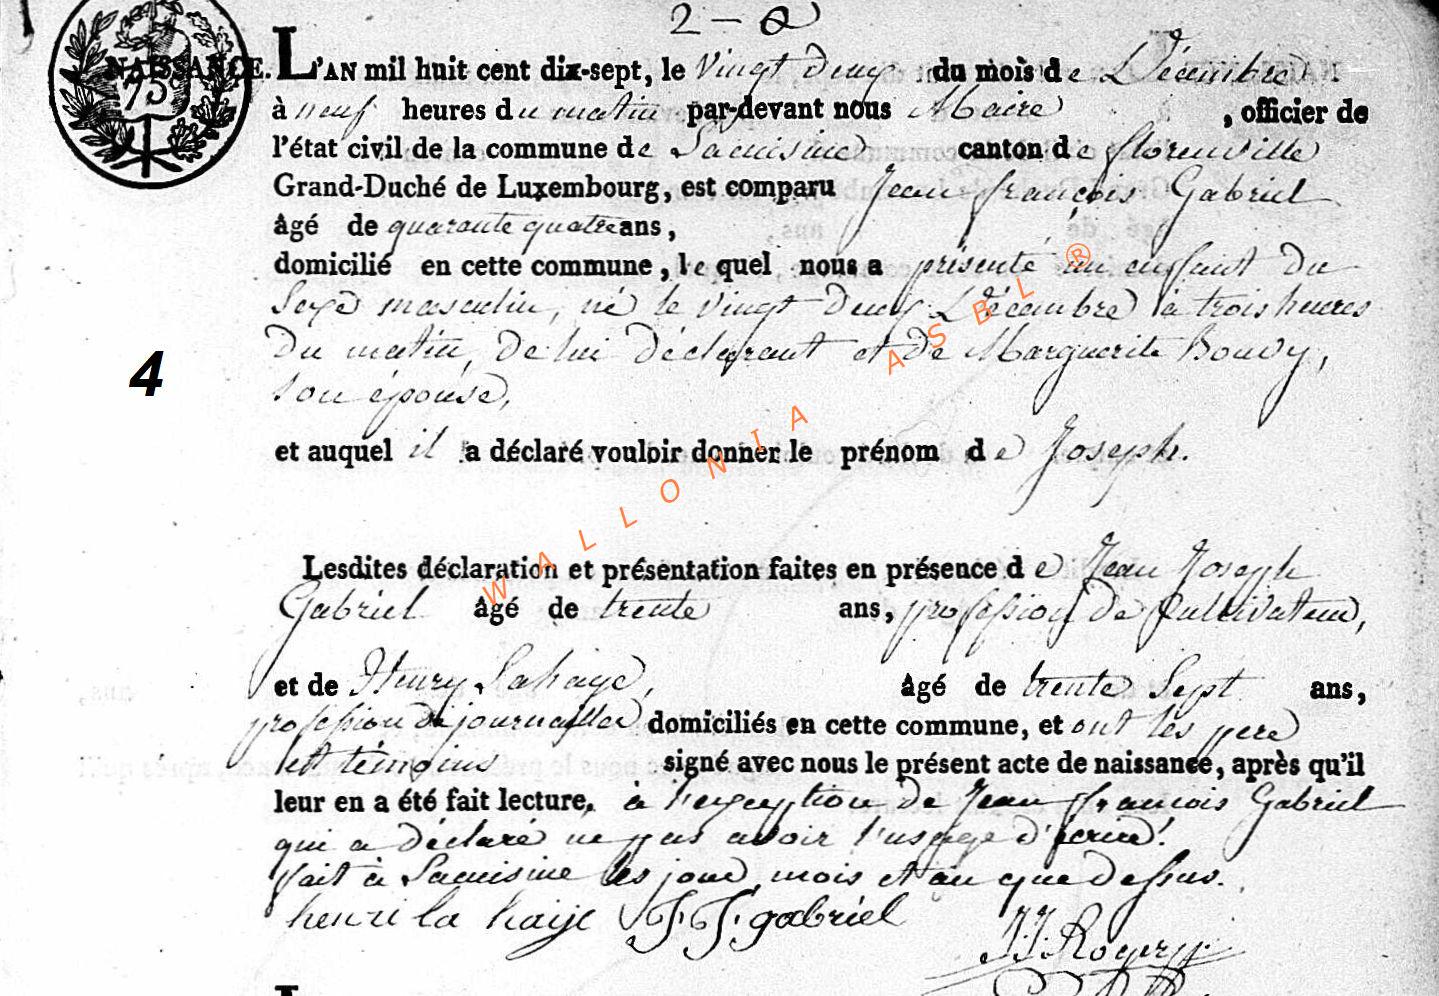 2 - a
NAISSANCE. L'AN mil huit cent dix-sept, le vingt deux du mois de Décembre
75
à neuf heures du matin par-devant nous Maire , officier de
l'état civil de la commune de Lacuisine canton de florenville
Grand-Duché de Luxembourg, est comparu Jean françois Gabriel
âgé de quarante quatre ans,
domicilié en cette commune, le quel nous a présenté un enfant du
sexe masculin, né le vingt deux Décembre à trois heures
du matin, de lui déclarant et de Marguerite Bouvy,
4
son épouse,
et auquel il a déclaré vouloir donner le prénom de Joseph.
Lesdites déclaration et présentation faites en présence de Jean Joseph
Gabriel âgé de trente ans, profession de Cultivateur,
et de Henry Lahaye, âgé de trente Sept ans,
profession de journallier domiciliés en cette commune, et ont les pere
et témoins signé avec nous le présent acte de naissance, après qu'il
leur en a été fait lecture, à l'exception de Jean françois Gabriel
qui a déclaré ne pas avoir l'usage d'écrire.
fait à Lacuisine les jour, mois et an que dessus.
henri la haije J J gabriel
J. J. Rogery
WALLONIA ASBL ®